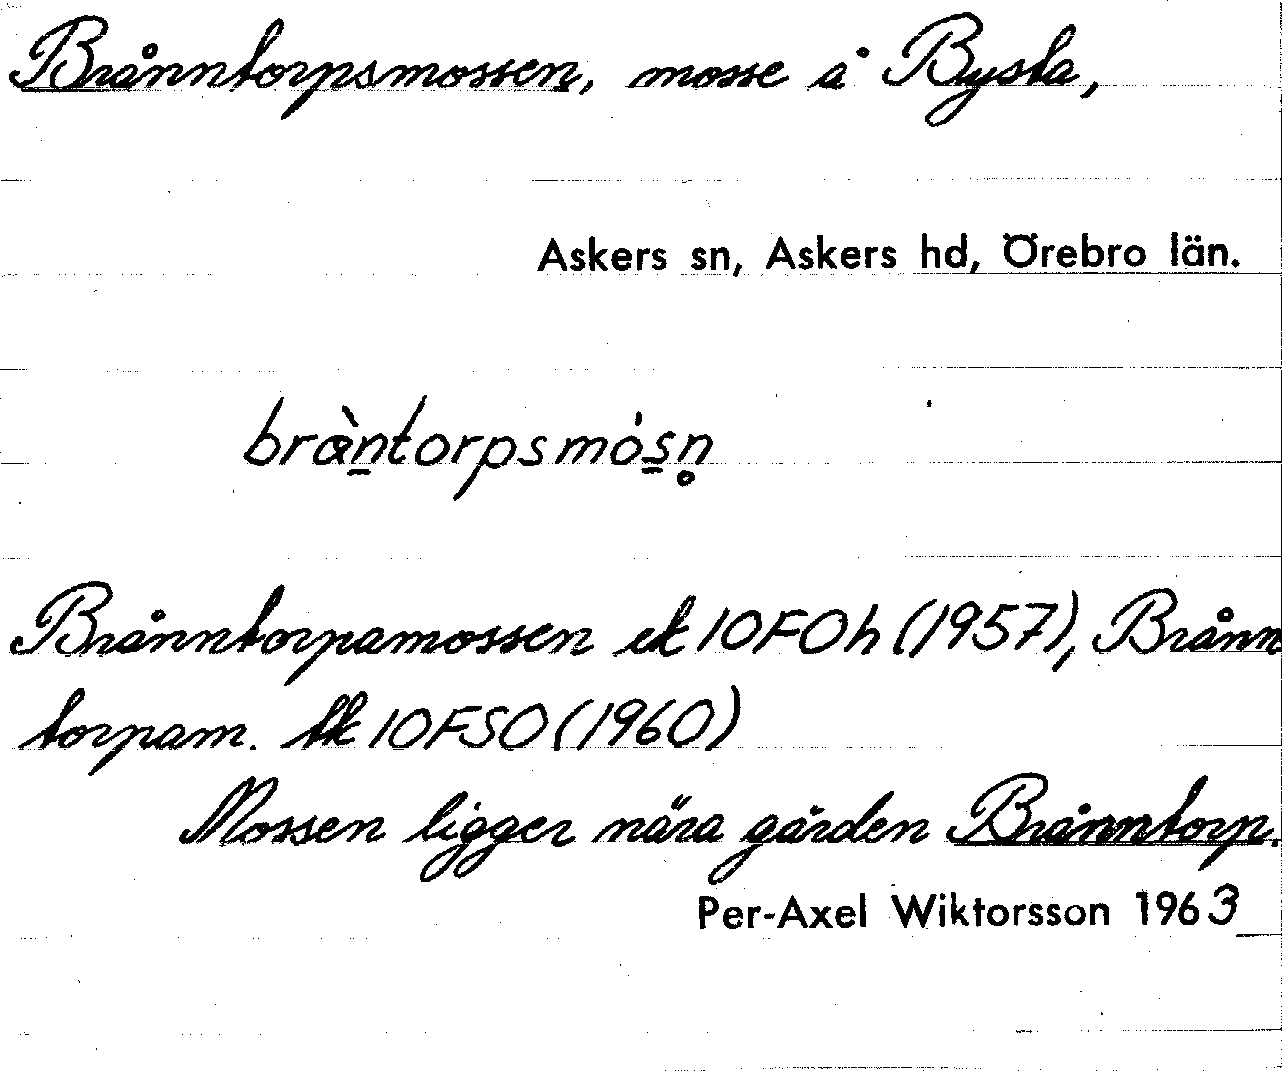 Brånntorpsmossen, mosse å Bysta,
Askers sn, Askers hd, Örebro län.
bràntorpsmósn̥
Brånntorpamossen ek 10F0h (1957), Brånn
torpam. tk 10FSO (1960)
Mossen ligger nära gården Brånntorp.
Per-Axel Wiktorsson 1963